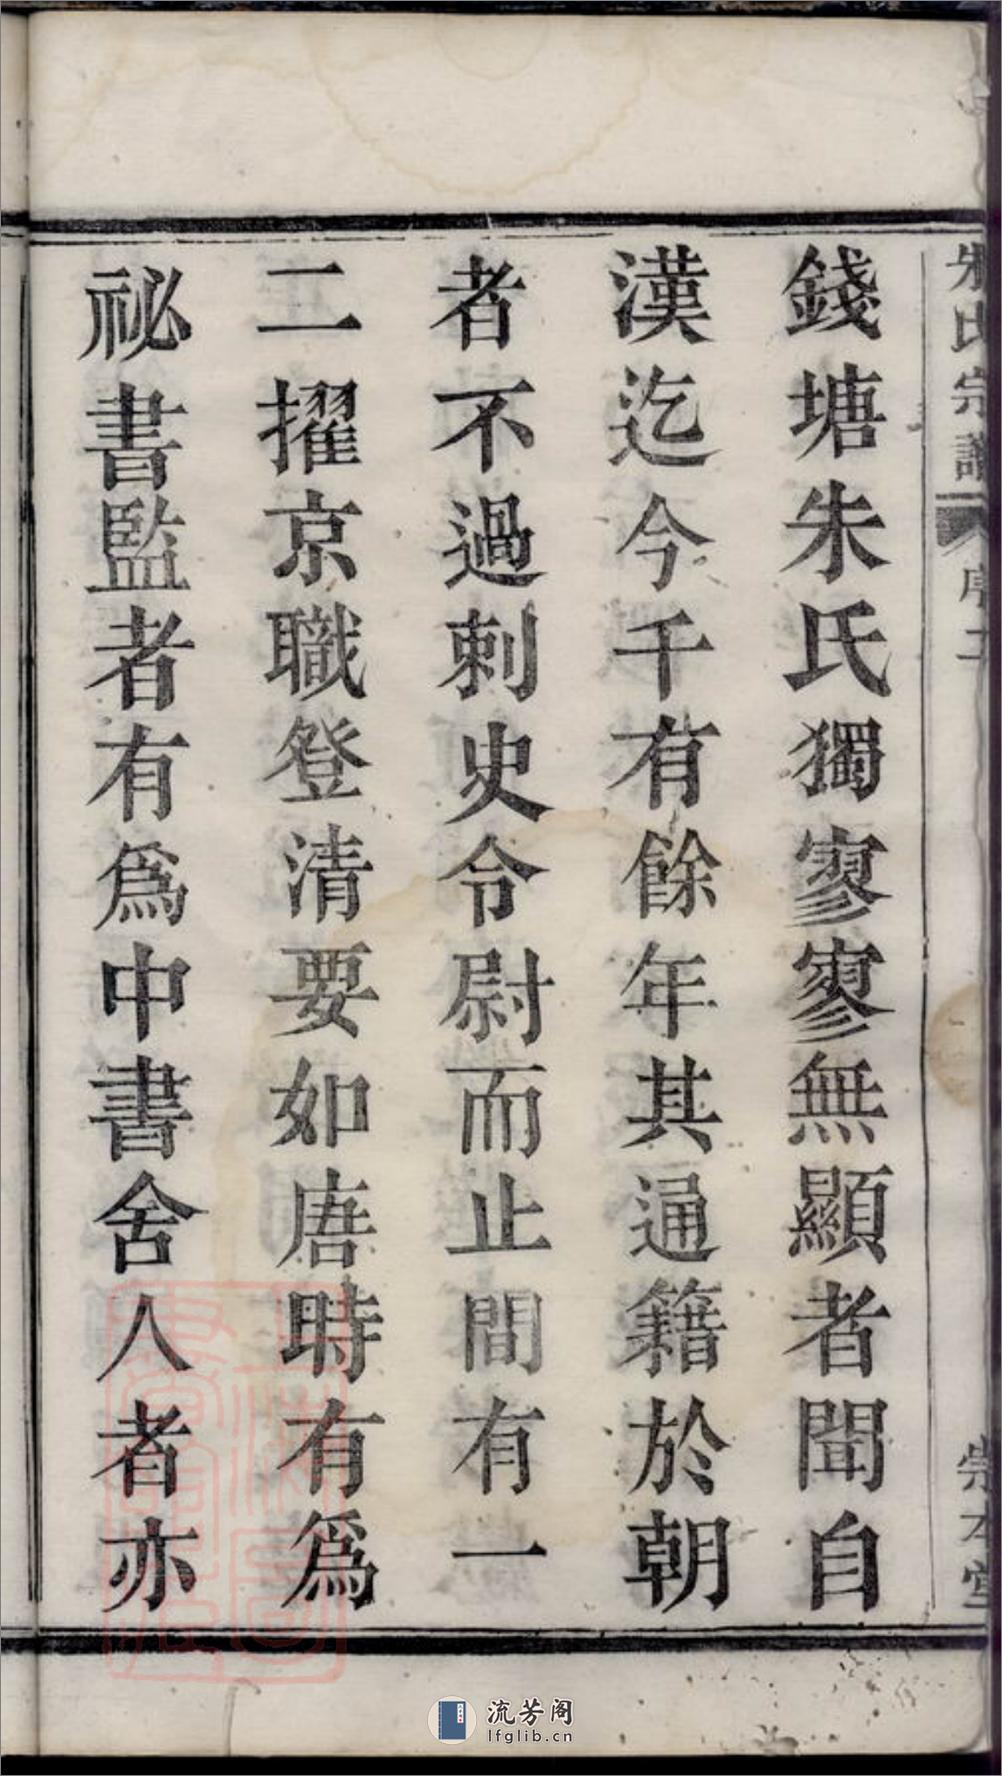 朱氏宗譜 序二 崇本堂
錢塘朱氏獨寥寥無顯者聞自
漢迄今千有餘年其通籍於朝
者不過刺史令尉而止間有一
二擢京職登清要如唐時有爲
祕書監者有爲中書舍人者亦
流芳阁
lfglib.cn